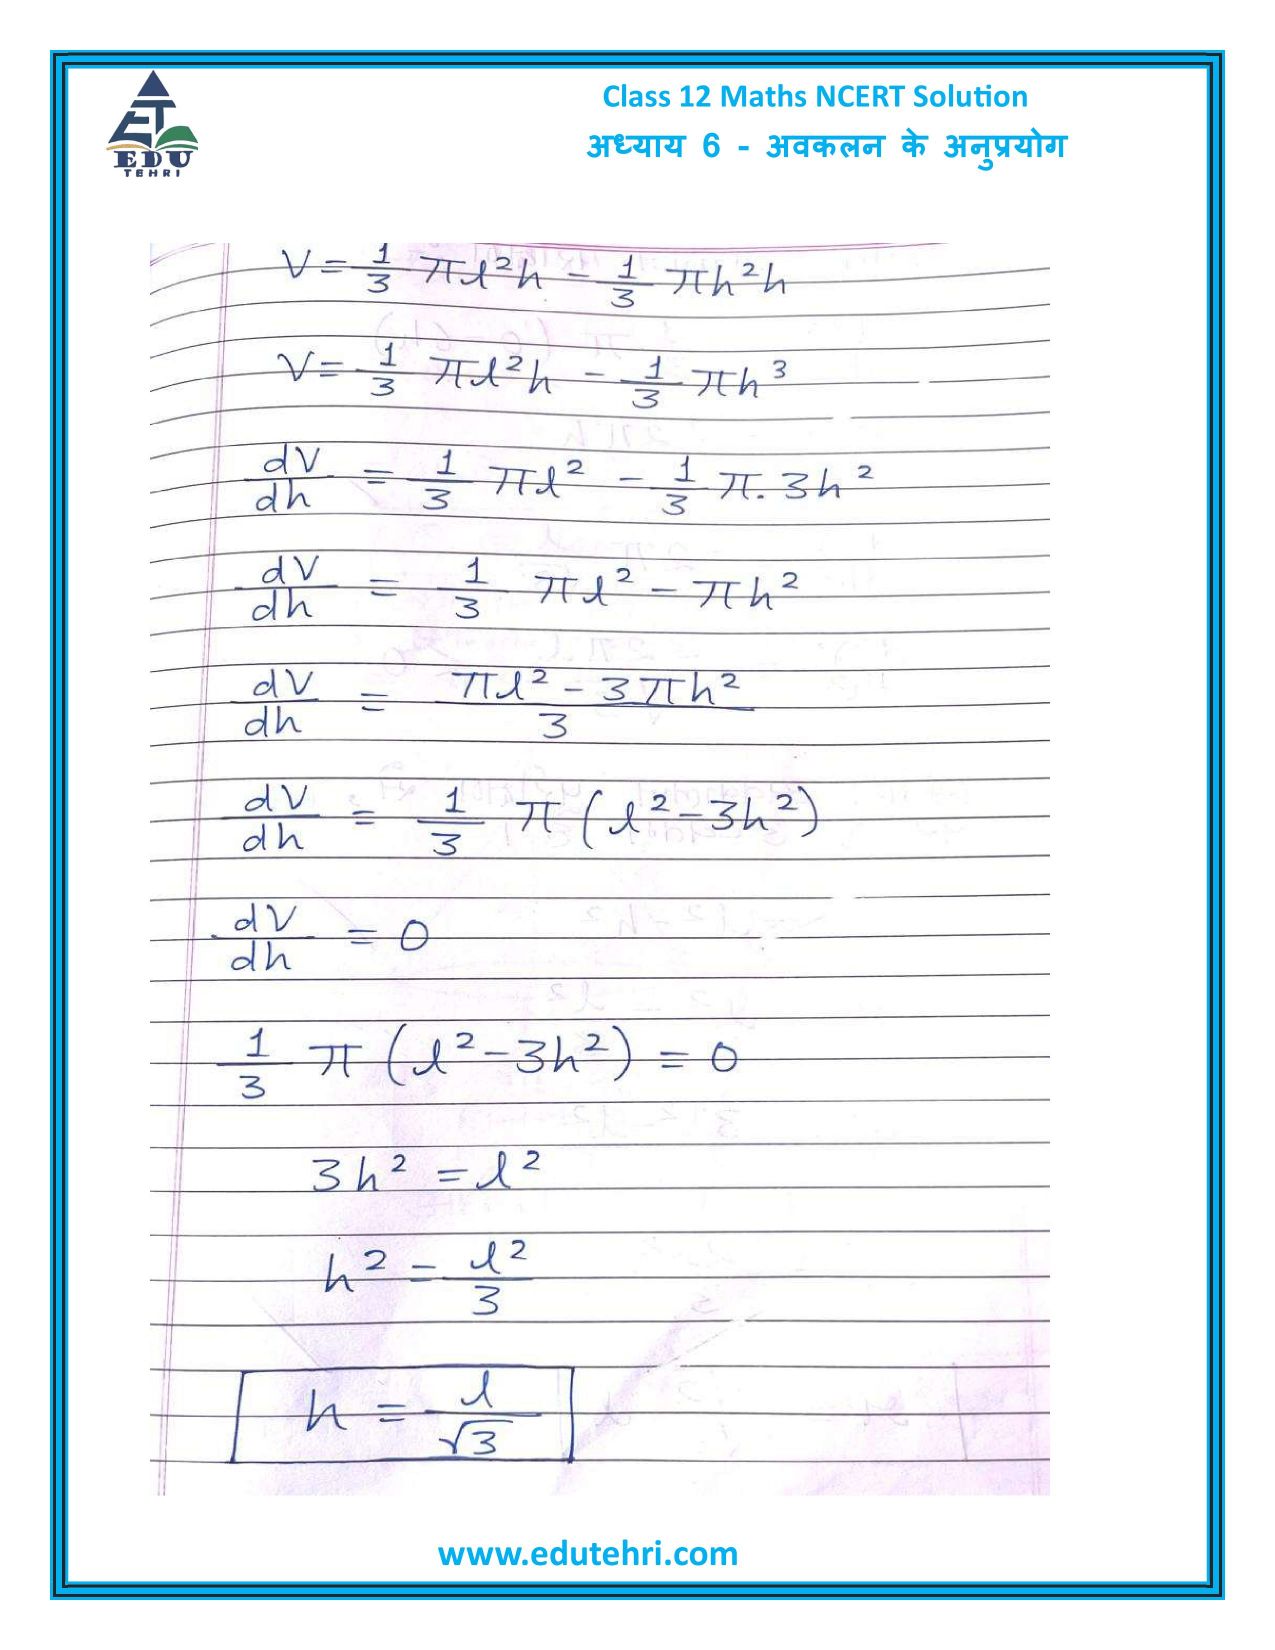 ET
EDU
TEHRI
Class 12 Maths NCERT Solution
अध्याय 6 - अवकलन के अनुप्रयोग
V = 1/3 πl²h - 1/3 πh²h
V = 1/3 πl²h - 1/3 πh³
dV/dh = 1/3 πl² - 1/3 π. 3h²
dV/dh = 1/3 πl² - πh²
dV/dh = (πl² - 3πh²)/3
dV/dh = 1/3 π (l² - 3h²)
dV/dh = 0
1/3 π (l² - 3h²) = 0
3h² = l²
h² = l²/3
h = l/√3
www.edutehri.com